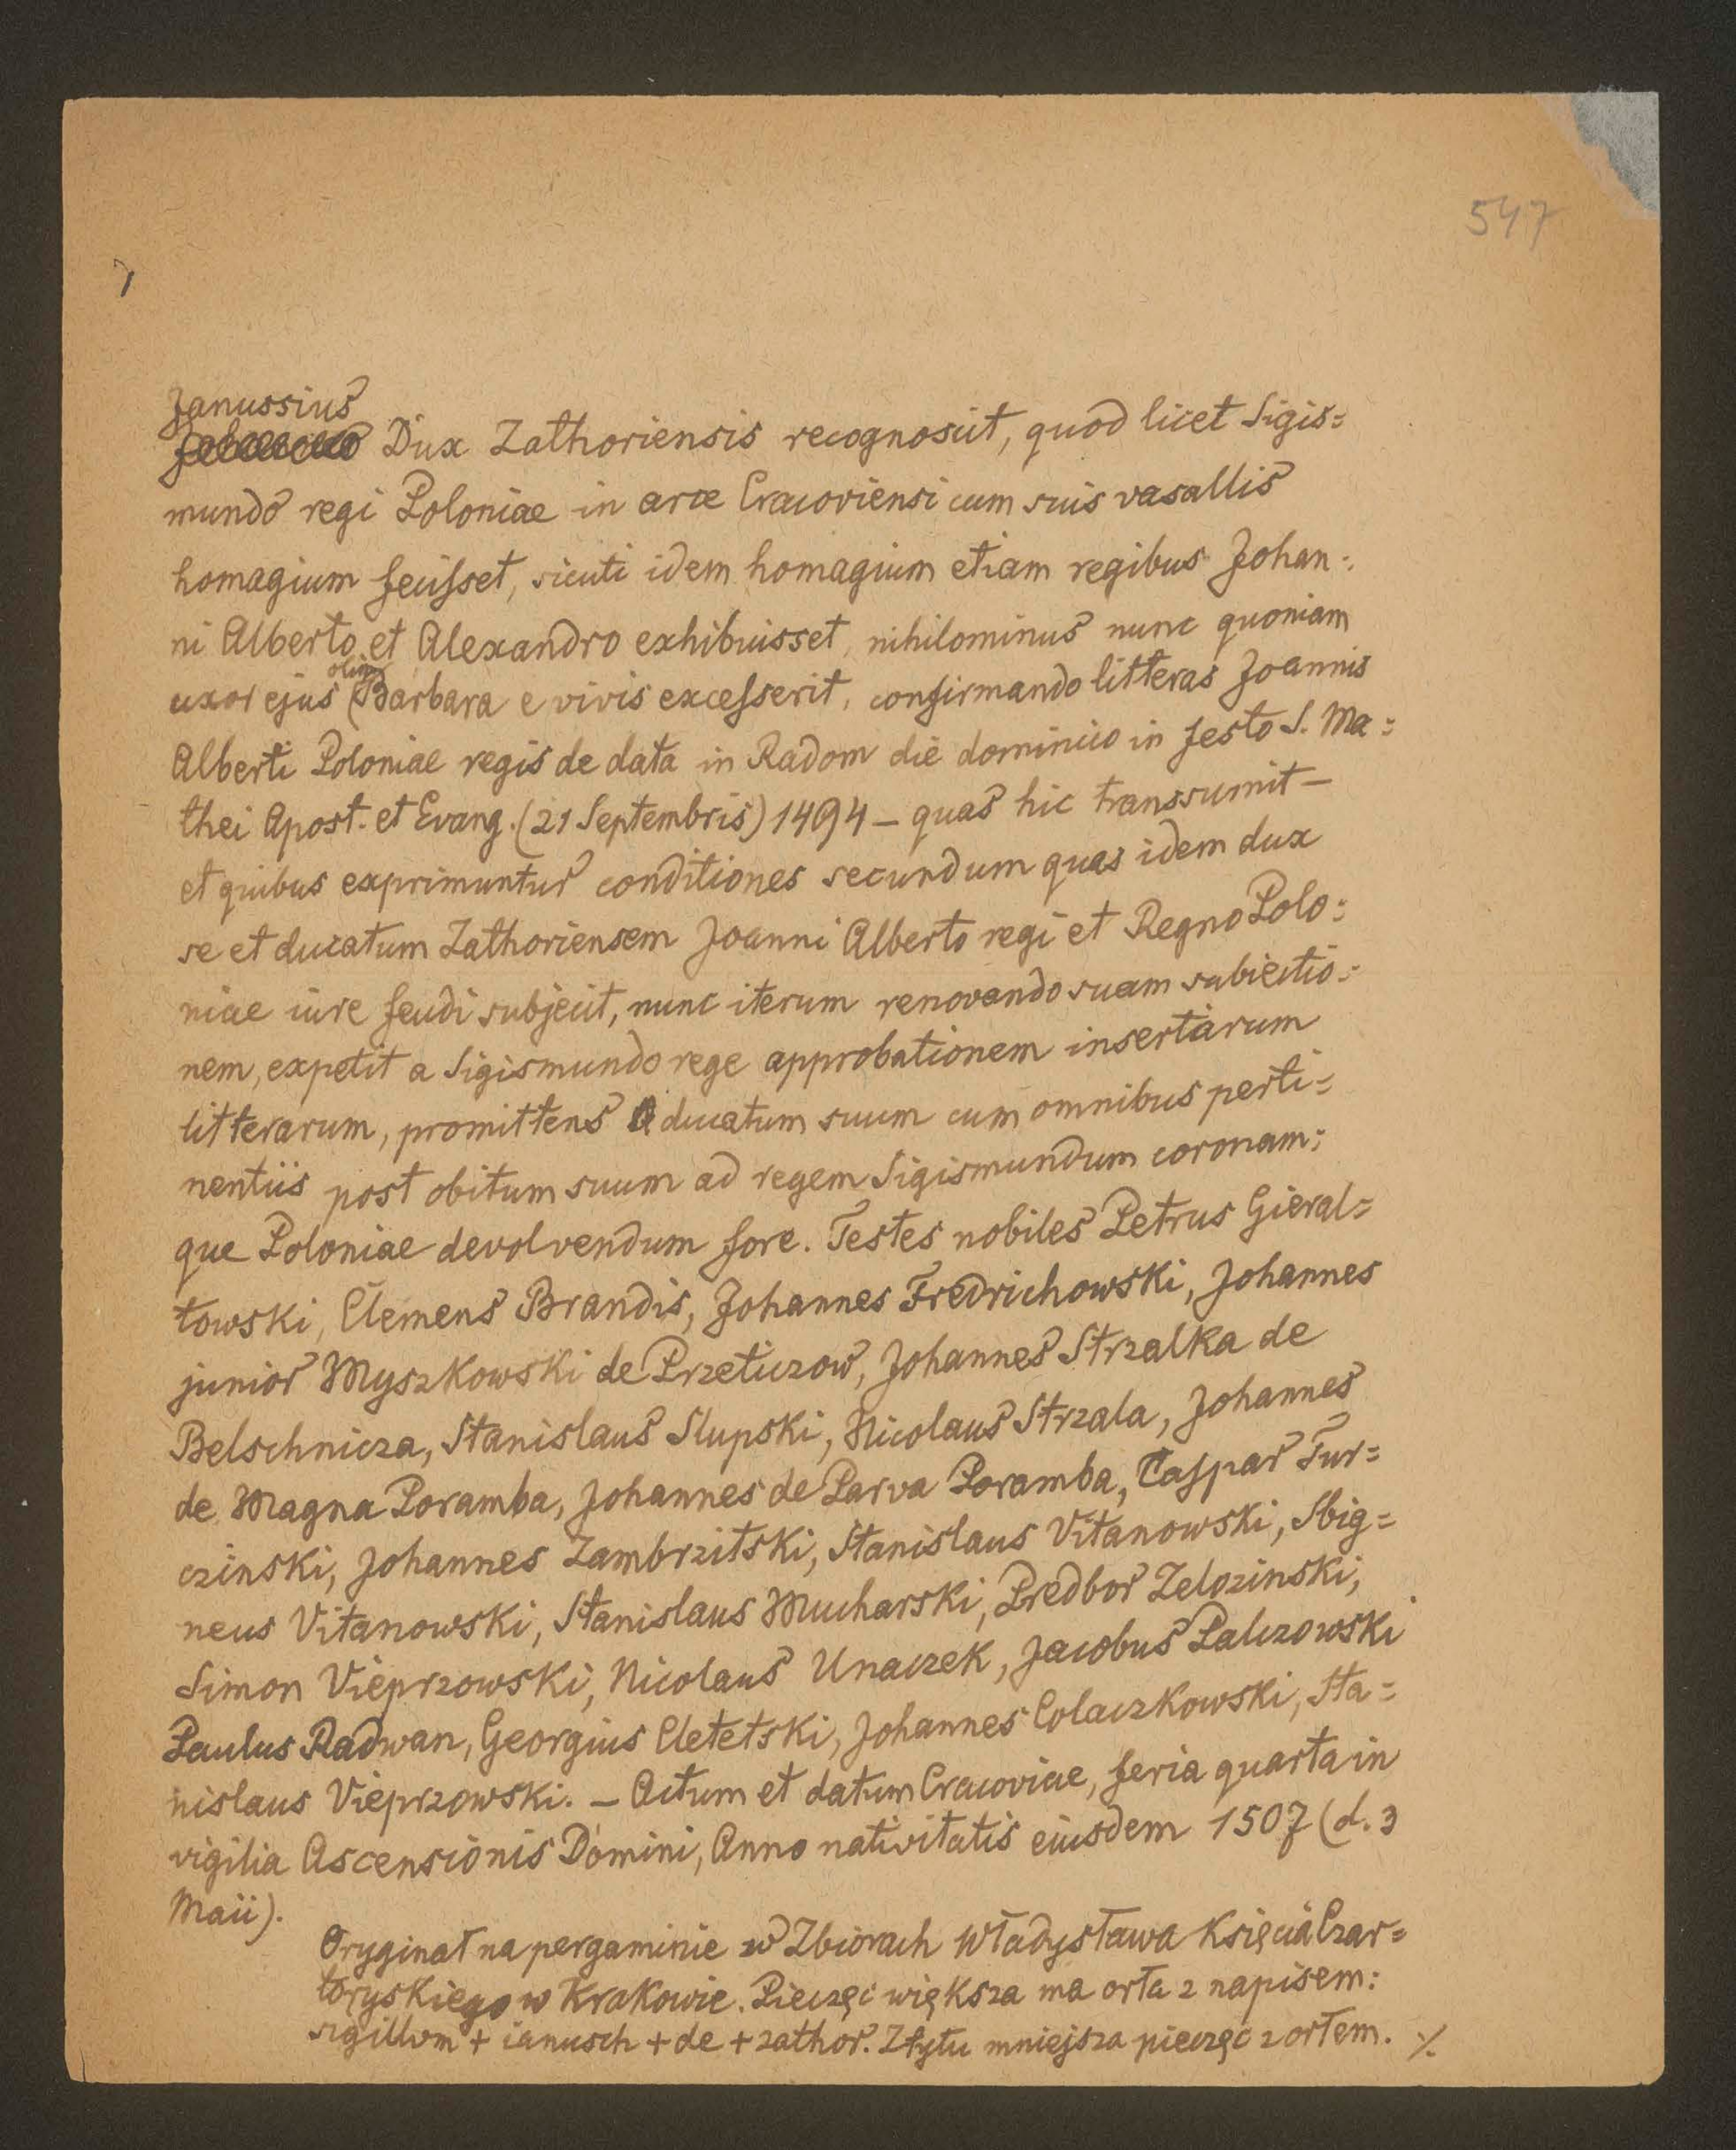 547
Janussius
Dux Zathoriensis recognoscit, quod licet Sigis=
mundo regi Poloniae in arce Cracoviensi cum suis vasallis
homagium fecisset, sicuti idem homagium etiam regibus Johan=
ni Alberto et Alexandro exhibuisset, nihilominus nunc quoniam
olim
uxor ejus Barbara e vivis excesserit, confirmando litteras Joannis
Alberti Poloniae regis de data in Radom die dominico in festo S. Ma=
thei Apost. et Evang. (21 Septembris) 1494 – quas hic transsumit –
et quibus exprimuntur conditiones secundum quas idem dux
se et ducatum Zathoriensem Joanni Alberto regi et Regno Polo=
niae iure feudi subjecit, nunc iterum renovando suam subiectio=
nem, expetit a Sigismundo rege approbationem insertarum
litterarum, promittens ducatum suum cum omnibus perti=
nentiis post obitum suum ad regem Sigismundum coronam=
que Poloniae devolvendum fore. Testes nobiles Petrus Gieral=
towski, Clemens Brandis, Johannes Fredrichowski, Johannes
junior Myszkowski de Przeticzow, Johannes Strzalka de
Belschnicza, Stanislaus Slupski, Nicolaus Strzala, Johannes
de Magna Poramba, Johannes de Parva Poramba, Caspar Tur=
czinski, Johannes Zambrzitski, Stanislaus Vitanowski, Sbig=
neus Vitanowski, Stanislaus Mucharski, Predbor Zelozinski,
Simon Vieprzowski, Nicolaus Unaczek, Jacobus Palczowski
Paulus Radwan, Georgius Cletetski, Johannes Colaczkowski, Sta=
nislaus Vieprzowski. – Actum et datum Cracoviae, feria quarta in
vigilia Ascensionis Domini, Anno nativitatis eiusdem 1507 (d. 3
Maii).
Oryginał na pergaminie w Zbiorach Władysława Księcia Czar=
toryskiego w Krakowie. Pieczęć większa ma orła z napisem:
sigillvm + ianusch + de + zathor. Z tyłu mniejsza pieczęć z orłem. ·/.